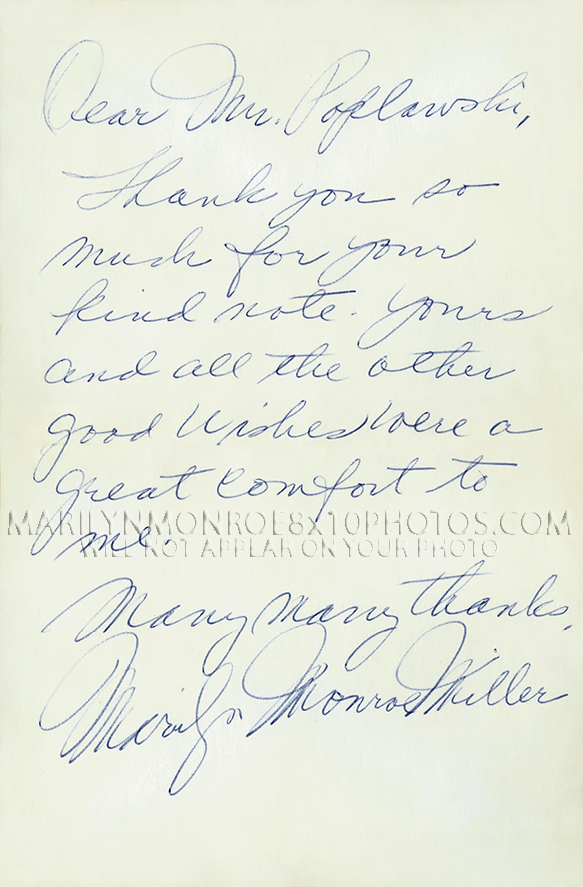 Dear Mr. Poplawski,
Thank you so
much for your
kind note. Yours
and all the other
good wishes were a
great comfort to
MARILYNMONROE8X10PHOTOS.COM
WILL NOT APPEAR ON YOUR PHOTO
me.
Many many thanks.
Marilyn Monroe Miller